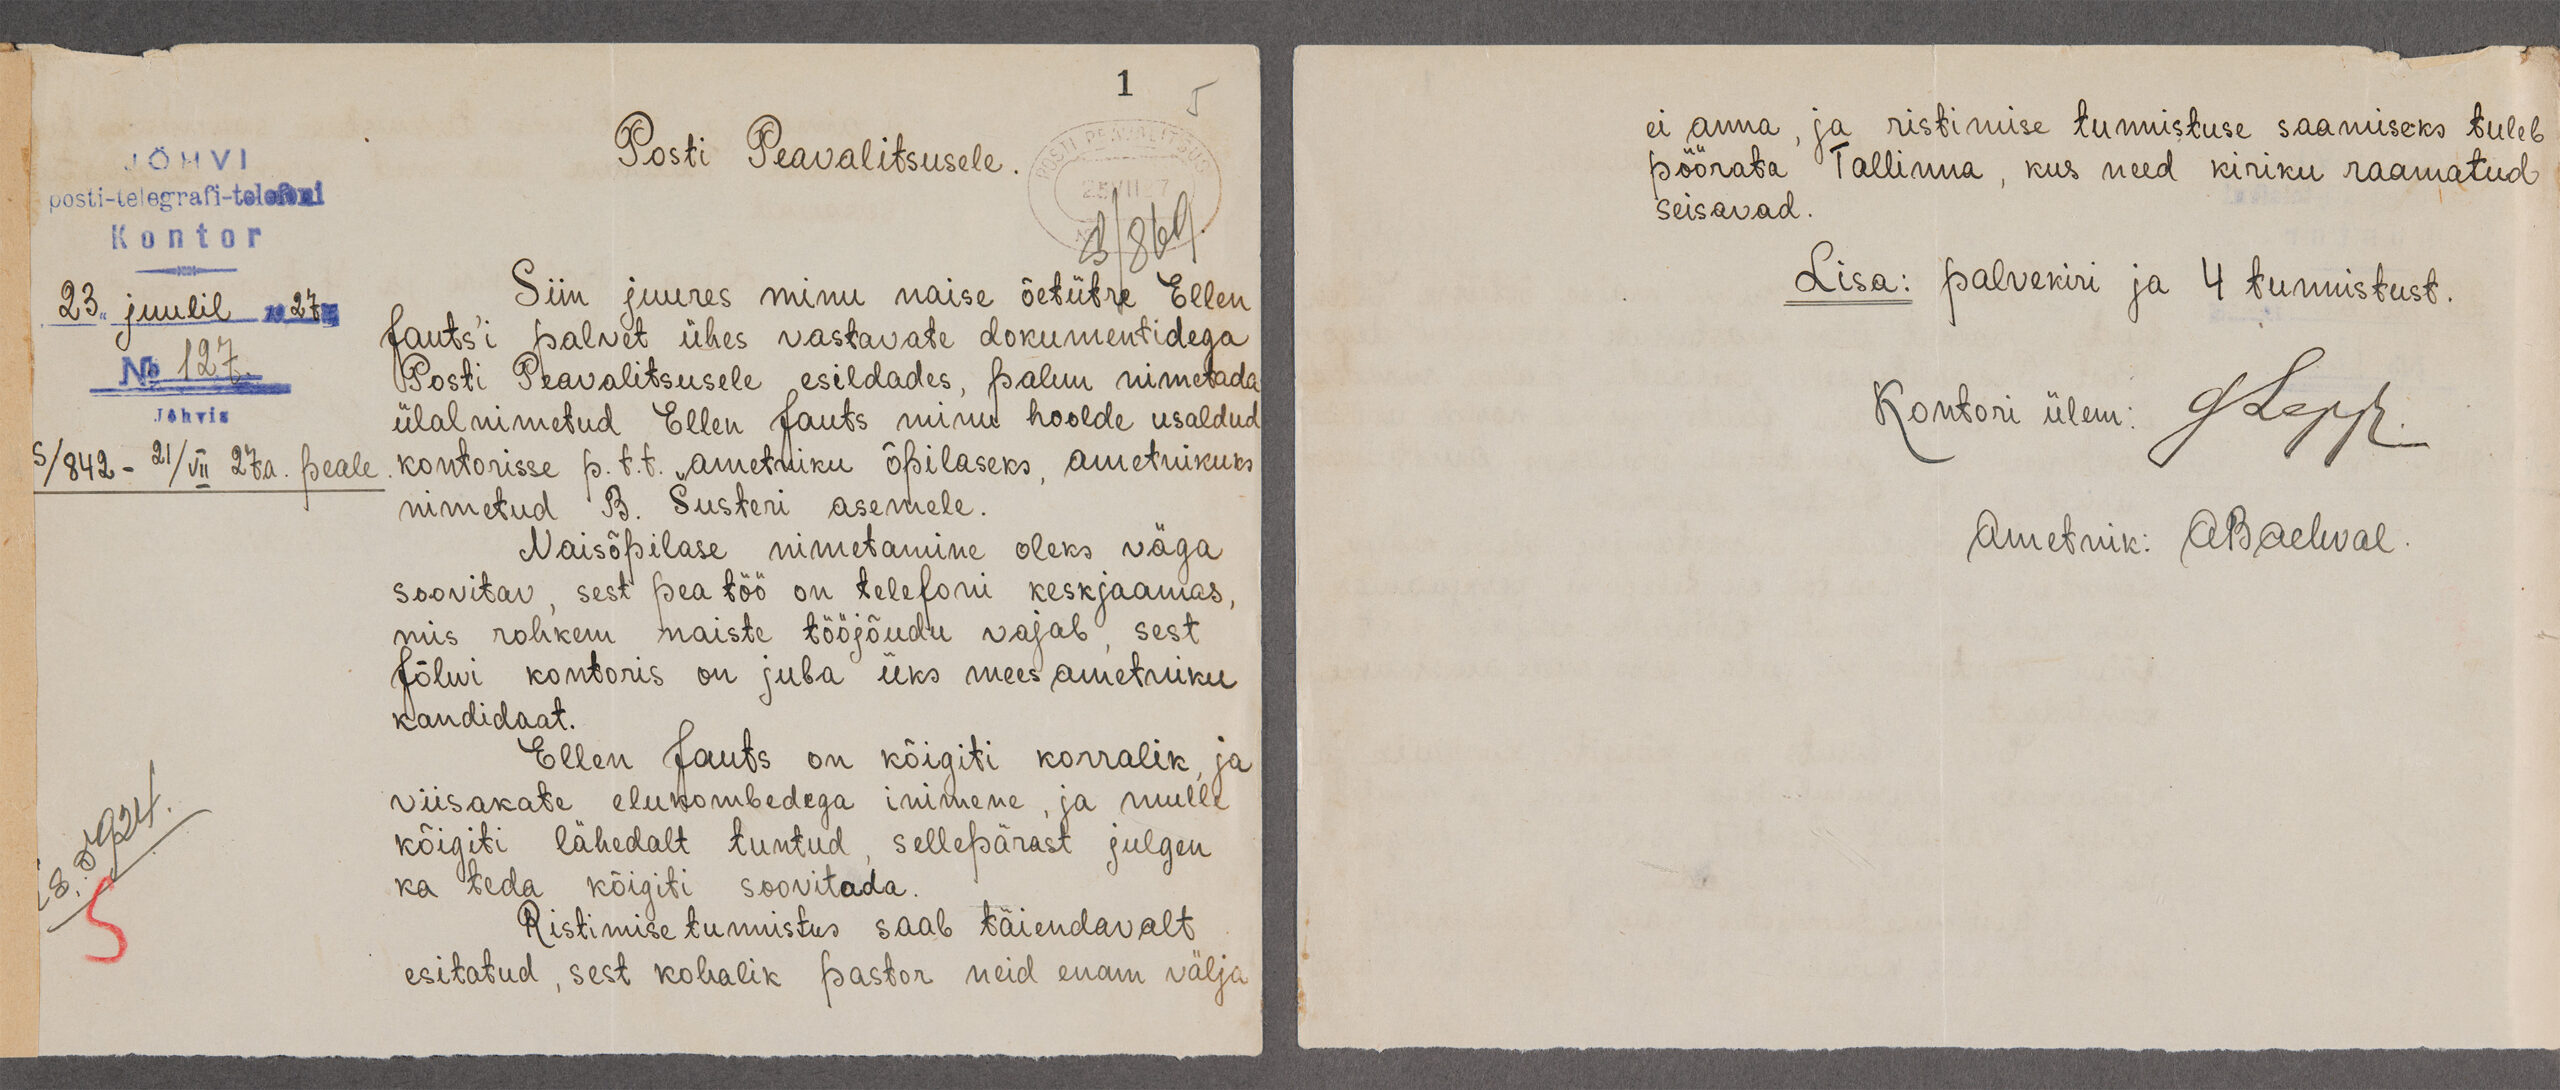 1
5
JÕHVI
posti-telegrafi-telefoni
Kontor
23. juulil 1927
№ 127.
Jõhvis
S/842 - 21/VII 27 a. peale.
POSTI PEAVALITSUS
Posti Peavalitsusele.
Siin juures minu naise õetütre Ellen
Jauts'i palvet ühes vastavate dokumentidega
Posti Peavalitsusele esildades, palun nimetada
ülalnimetud Ellen Jauts minu hoolde usaldud
kontorisse p.t.t. ametniku õpilaseks, ametnikuks
nimetud B. Šusteri asemele.
Naisõpilase nimetamine oleks väga
soovitav, sest pea töö on telefoni keskjaamas,
mis rohkem naiste tööjõudu vajab, sest
Jõhvi kontoris on juba üks mees ametniku
kandidaat.
Ellen Jauts on kõigiti korralik, ja
viisakate elukombedega inimene, ja mulle
kõigiti lähedalt tuntud, sellepärast julgen
ka teda kõigiti soovitada.
Ristimise tunnistus saab täiendavalt
esitatud, sest kohalik pastor neid enam välja
5
ei anna, ja ristimise tunnistuse saamiseks tuleb
pöörata Tallinna, kus need kiriku raamatud
seisavad.
Lisa: palvekiri ja 4 tunnistust.
Kontori ülem: Lepp.
Ametnik: